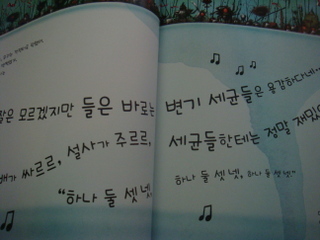 은 모르겠지만 들은 바로는
배가 싸르르, 설사가 주르르,
"하나 둘 셋 넷,
변기 세균들은 용감하다네...
세균들한테는 정말 재밌
하나 둘 셋 넷, 하나 둘 셋 넷!"